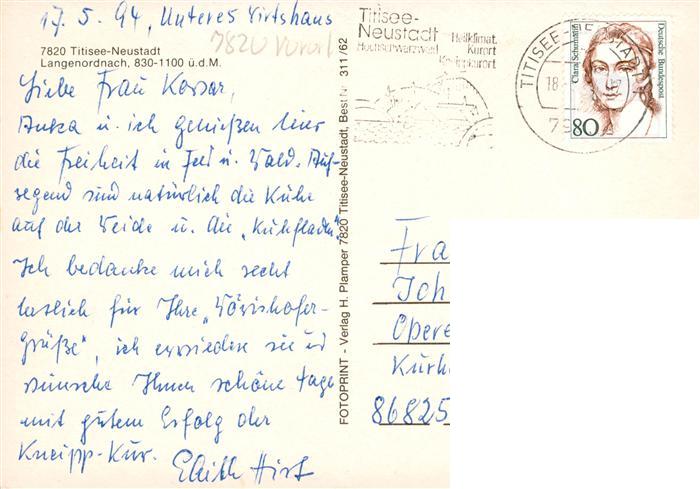 17.5.94, Unteres Wirtshaus
7820 Vorort
7820 Titisee-Neustadt
Langenordnach, 830-1100 ü.d.M.
Liebe Frau
u. ich genießen hier
die Freiheit in Feld u. Wald. Auf-
regend sind natürlich die Kühe
auf der Weide u. die „Kuhfladen".
Ich bedanke mich recht
herzlich für Ihre „Wörishofer-
Grüße", ich erwiedere sie u
wünsche Ihnen schöne Tage
mit gutem Erfolg der
Kneipp-Kur. Edith Hirt
FOTOPRINT - Verlag H. Plamper 7820 Titisee-Neustadt, Best Nr. 311/62
Titisee-
Neustadt Heilklimat.
Hochschwarzwald Kurort
Kneippkurort
TITISEE-NEUSTADT
18.
Clara Schumann
Deutsche Bundespost
80
Fra
Joh
Opere
Kurh
86825